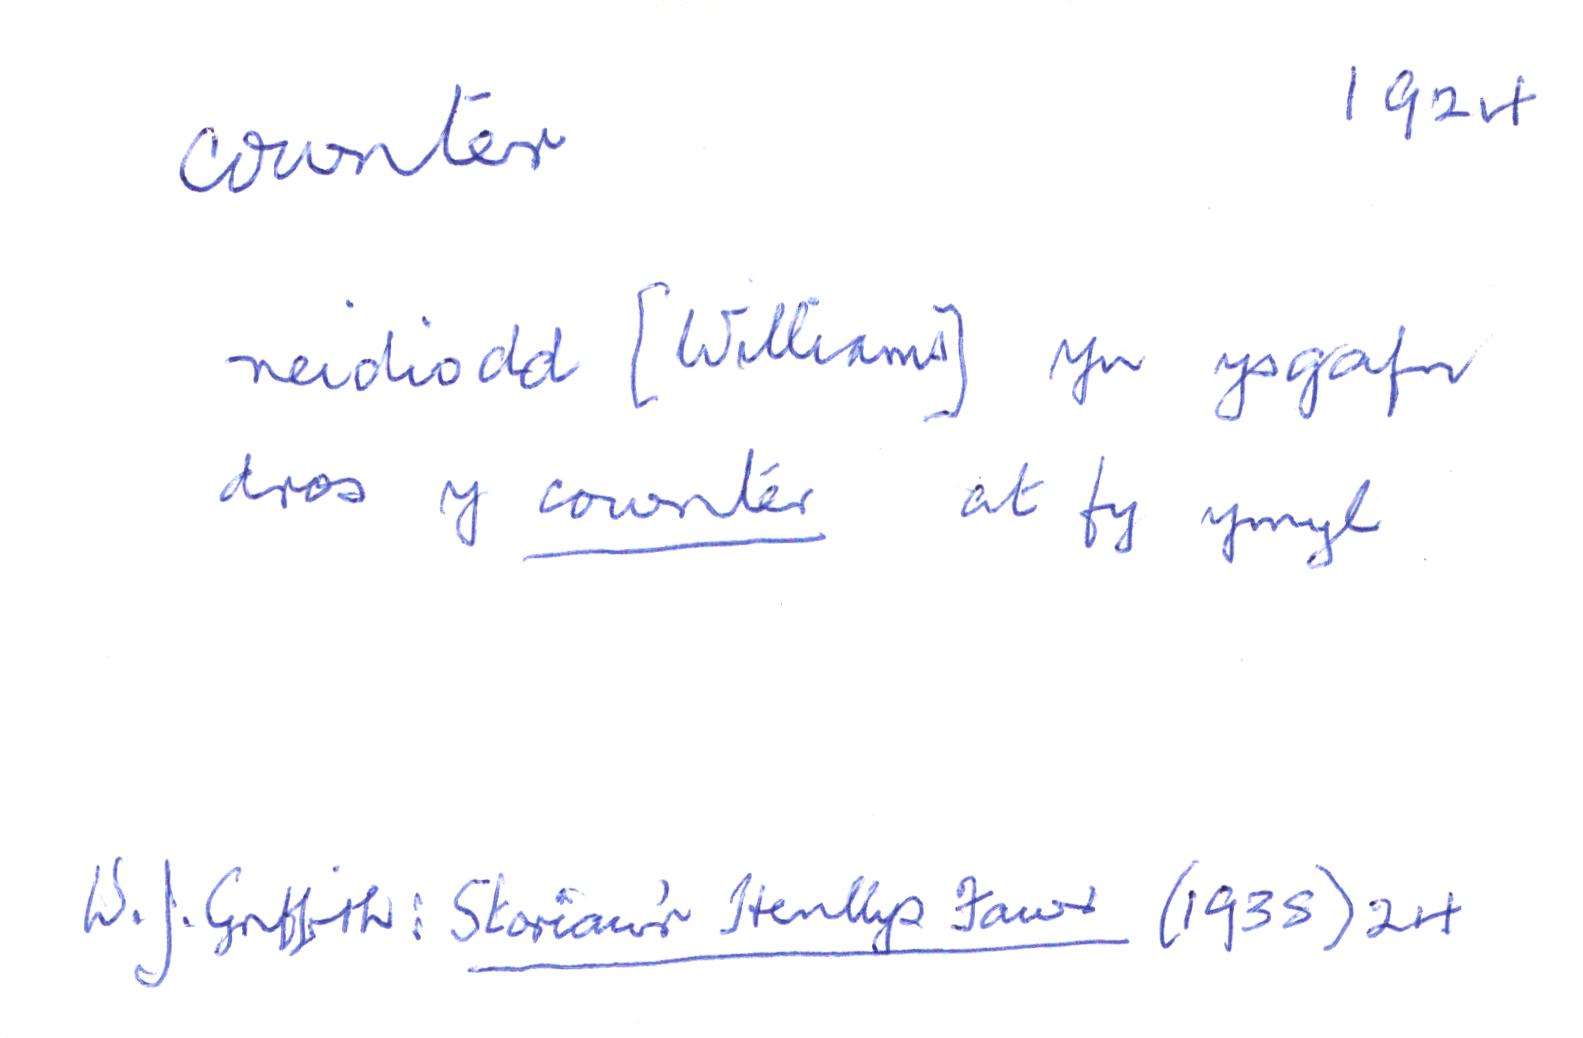 counter 1924
neidiodd [Williams] yn ysgafn
dros y counter at fy ymyl
W. J. Griffith: Storïau'r Henllys Fawr (1938) 24